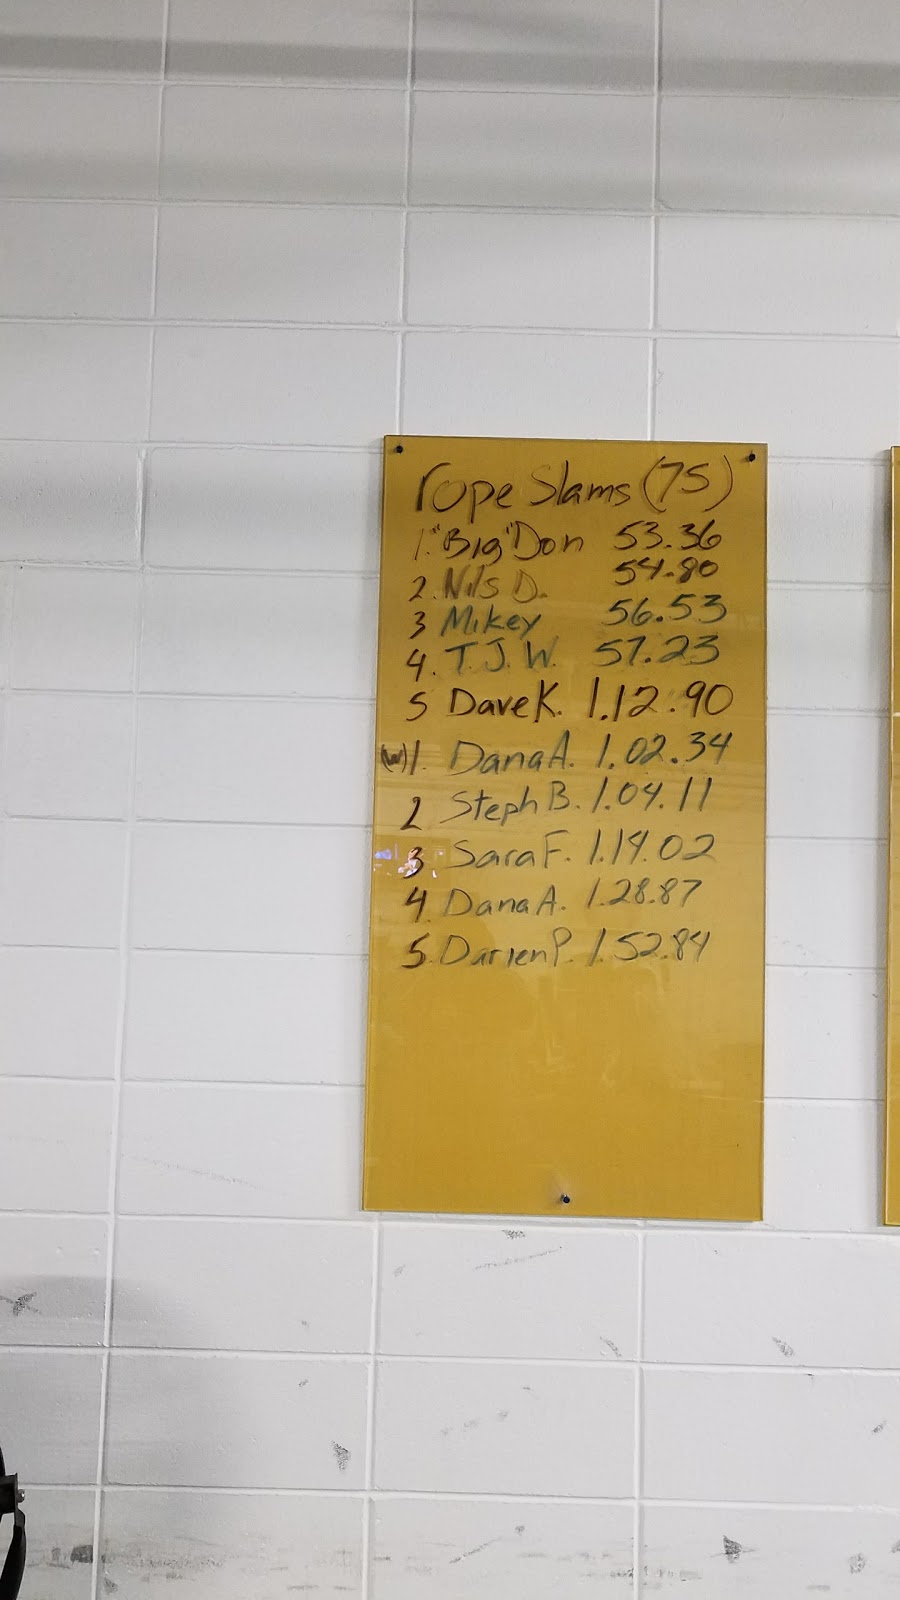 rope Slams (75)
1. "Big" Don 53.36
2. Nils D. 54.80
3 Mikey 56.53
4. T.J.W. 57.23
5 Dave K. 1.12.90
(w) 1. Dana A. 1.02.34
2 Steph B. 1.04.11
3 Sara F. 1.14.02
4 Dana A. 1.28.87
5. Darien P. 1.52.84